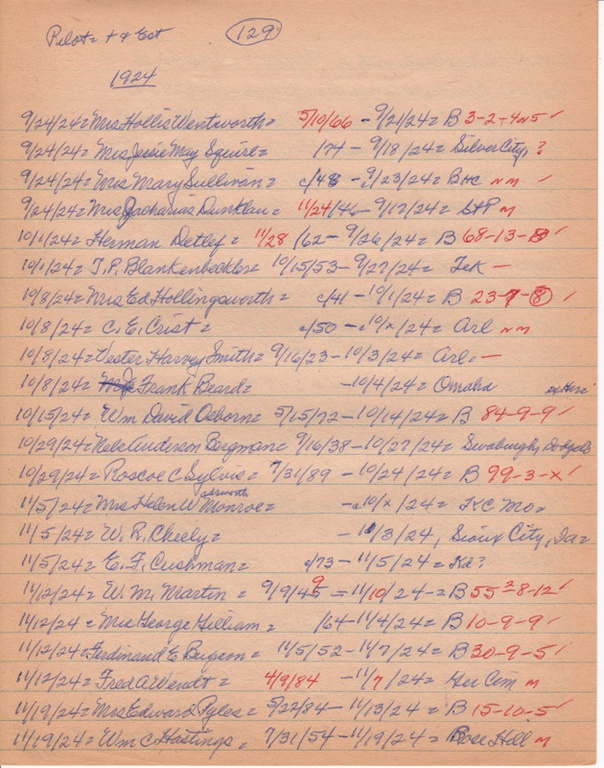 Pilot = + & Est (129)
1924
9/24/24 = Mrs Hollis Wentworth = 5/10/66 - 9/21/24 = B 3-2-4or5 ✓
9/24/24 = Mrs Jessie May Squire = /74 - 9/18/24 = Silver City, ?
9/24/24 = Mrs Mary Sullivan = c/48 - 9/23/24 = BHC nm ✓
9/24/24 = Mrs Zacharias Dunklau = 11/24/46 - 9/17/24 = M
10/1/24 = Herman Detlef = 11/28/62 - 9/26/24 = B 68-13-8 ✓
10/1/24 = T.P. Blankenbeckler = 10/15/53 - 9/27/24 = Tek -
10/8/24 = Mrs Ed Hollingsworth = c/41 - 10/1/24 = B 23-7-8 ✓
10/8/24 = C. E. Crist = c/50 - c10/x/24 = Arl nm
10/8/24 = Vester Harvey Smith = 9/16/23 - 10/3/24 = Arl. -
10/8/24 = Frank Beard = - 10/4/24 = Omaha
10/15/24 = Wm David Osborn = 5/15/72 - 10/14/24 = B 84-9-9 ✓
10/29/24 = Nels Anderson Bergman = 9/16/38 - 10/27/24 = Swaburgh, Dodge
10/29/24 = Roscoe C Sylvis = 7/31/89 - 10/24/24 = B 99-3-x ✓
11/5/24 = Mrs Helen Wadsworth Monroe = - c10/x/24 = K C Mo =
11/5/24 = W. R. Cheely = - 11/3/24, Sioux City, Ia =
11/5/24 = E. F. Cushman = c/73 - 11/5/24 = Kd?
11/12/24 = W. M. Martin = 9/9/49 = 11/10/24 = B 55²-8-12 ✓
11/12/24 = Mrs George Gilliam = /64 - 11/4/24 = B 10-9-9 ✓
11/12/24 = Ferdinand E Bugeon = 11/5/52 - 11/7/24 = B 30-9-5 ✓
11/12/24 = Fred A Wendt = 4/9/84 - 11/7/24 = Ger Cem M
11/19/24 = Mrs Edward Pyles = 5/22/84 - 11/13/24 = B 15-10-5 ✓
11/19/24 = Wm C Hastings = 7/31/54 - 11/19/24 = Rose Hill M